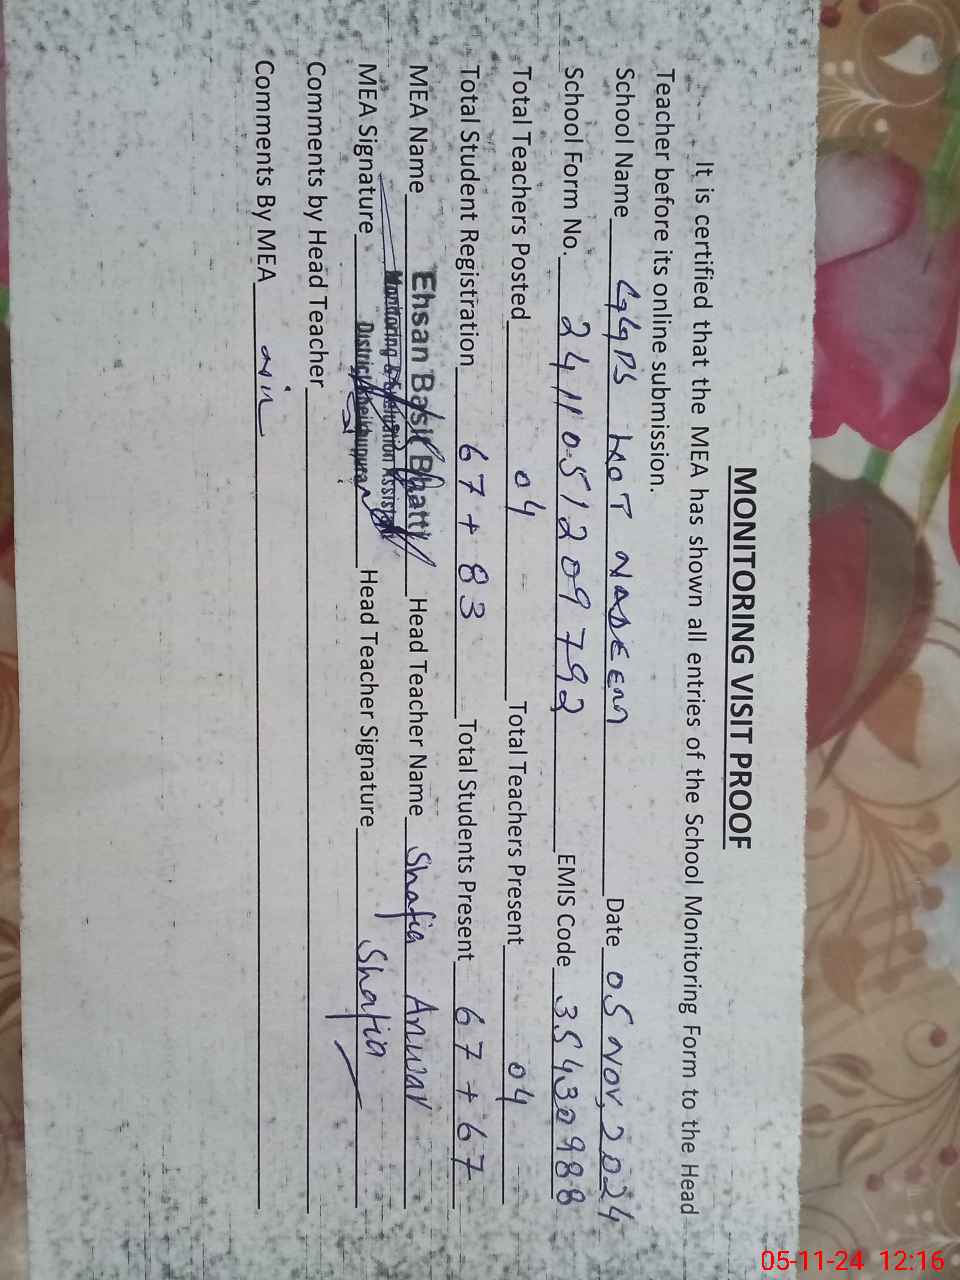 MONITORING VISIT PROOF
It is certified that the MEA has shown all entries of the School Monitoring Form to the Head
Teacher before its online submission.
School Name GGPS KOT NADEEM Date 05 Nov, 2024
School Form No. 241105120979 2 EMIS Code 35430988
Total Teachers Posted 04 Total Teachers Present 04
Total Student Registration 67 + 83 Total Students Present 67 + 67
MEA Name Ehsan Basir Bhatti Head Teacher Name Shafia Anwar
Monitoring & Evaluation Assistant
MEA Signature District Sheikhupura Head Teacher Signature Shafia
Comments by Head Teacher
Comments By MEA Nil
05-11-24 12:16